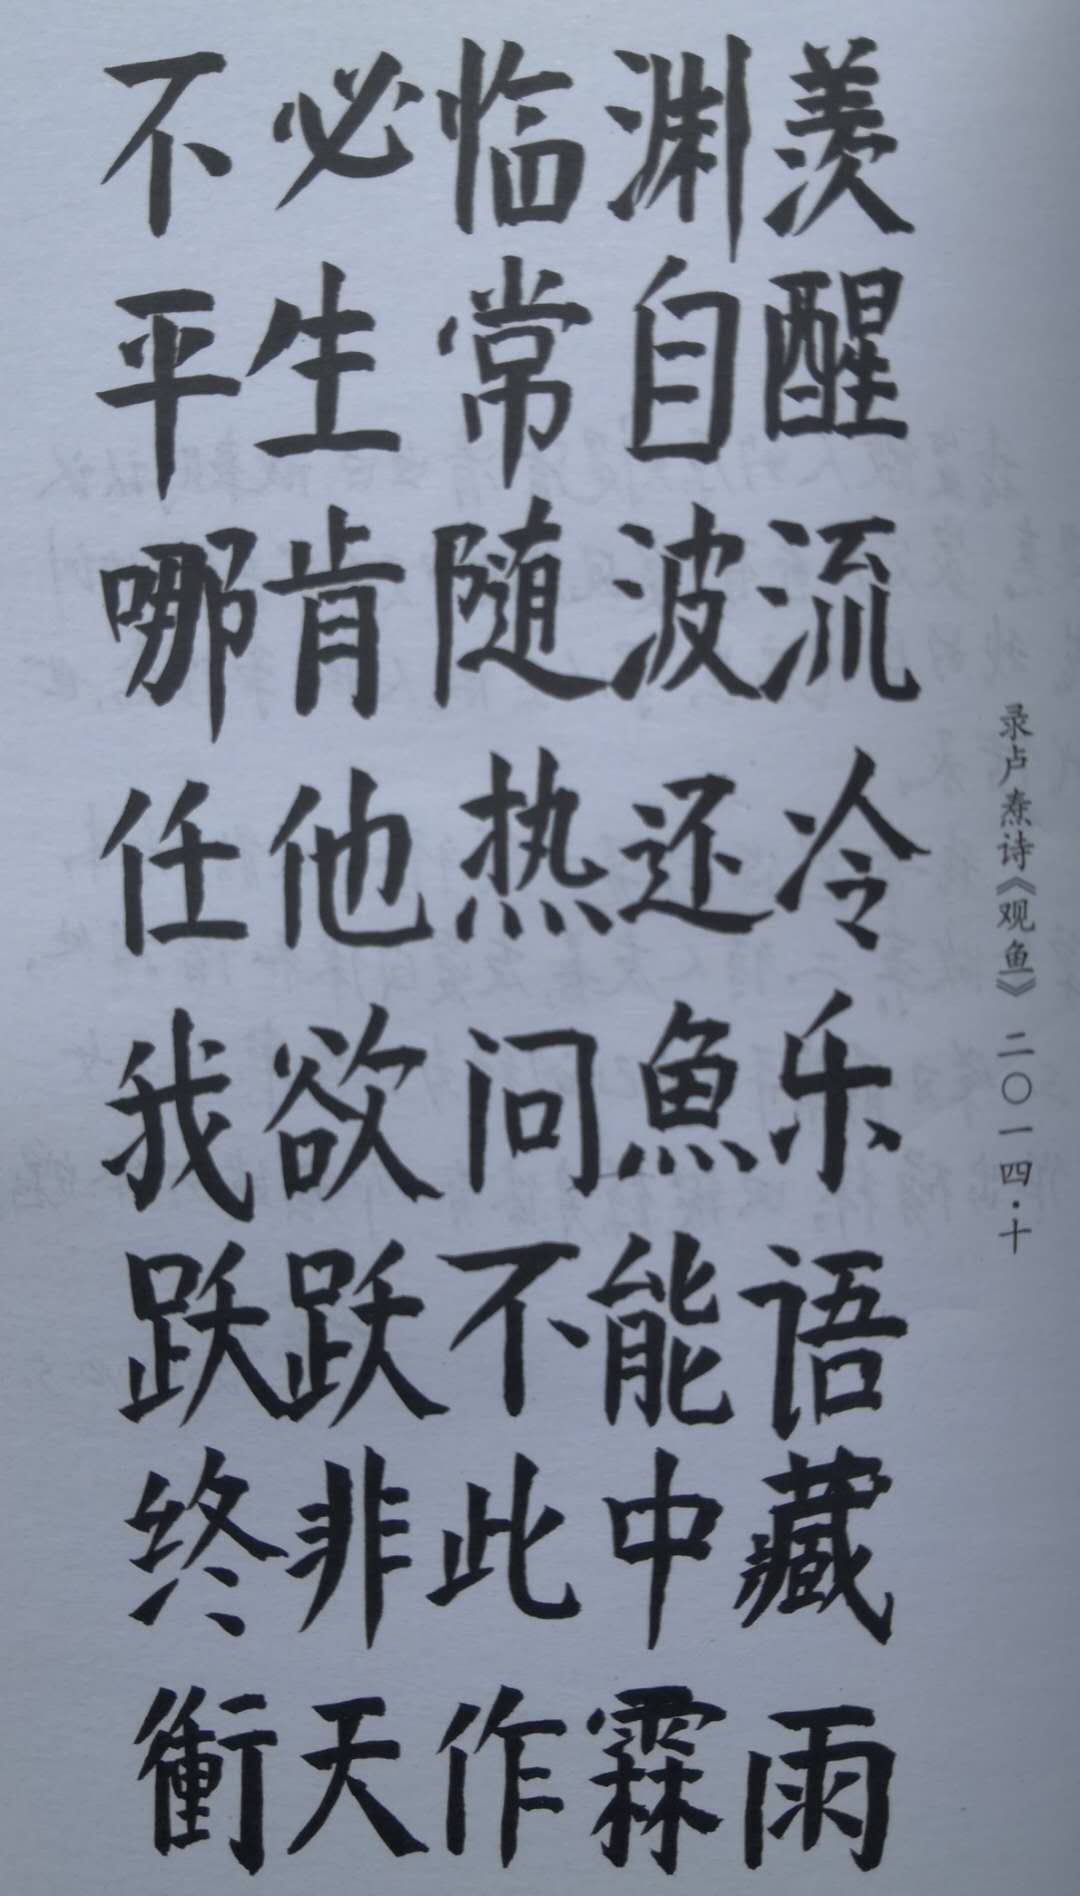 不必临渊羡
平生常自醒
哪肯随波流
任他热还冷
我欲问魚乐
跃跃不能语
终非此中藏
衝天作霖雨
录卢焘诗《观鱼》二〇一四·十